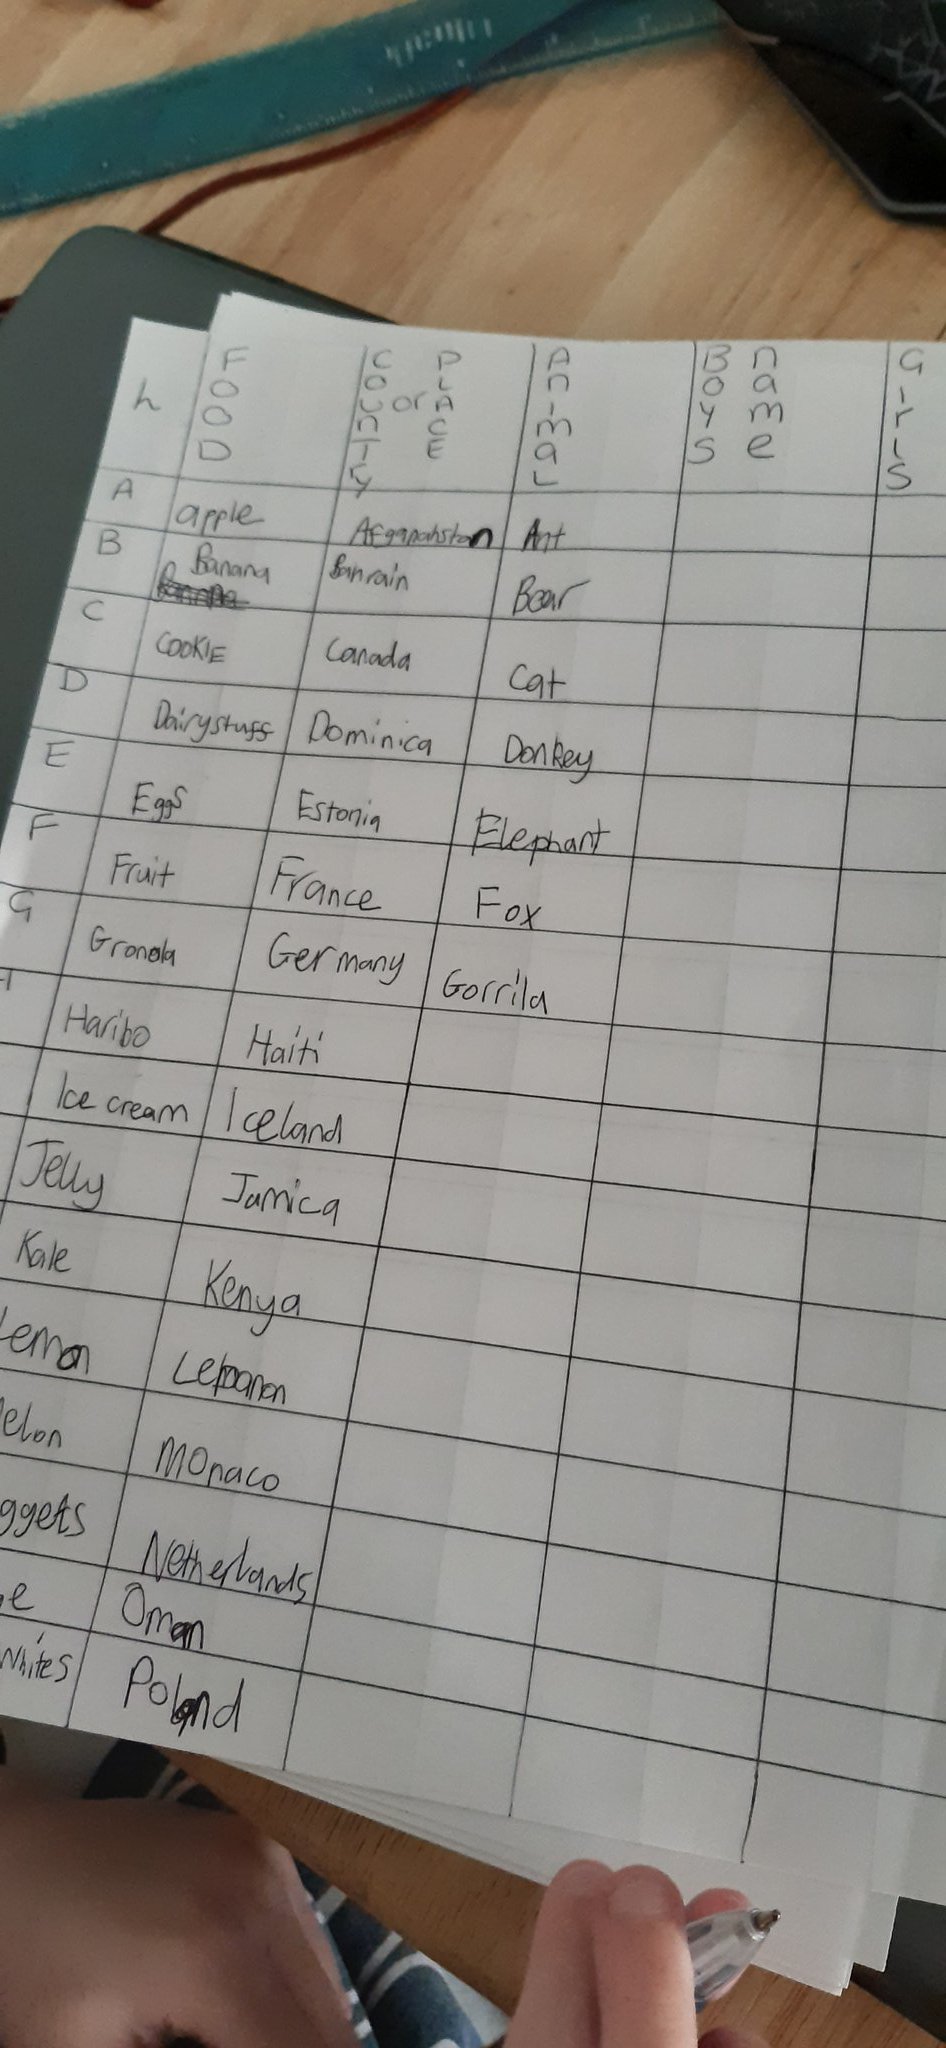 L FOOD COUNTRY or PLACE Animal Boys name GIrLS
A apple Afganahstan Ant
B Banana Bahrain Bear
C COOKIE Canada Cat
D Dairystuff Dominica Donkey
E Eggs Estonia Elephant
F Fruit France Fox
G Gronola Germany Gorrila
H Haribo Haiti
Ice cream Iceland
Jelly Jamica
Kale Kenya
Lemon Lebanon
elon Monaco
ggets Netherlands
ge Oman
Whites Poland